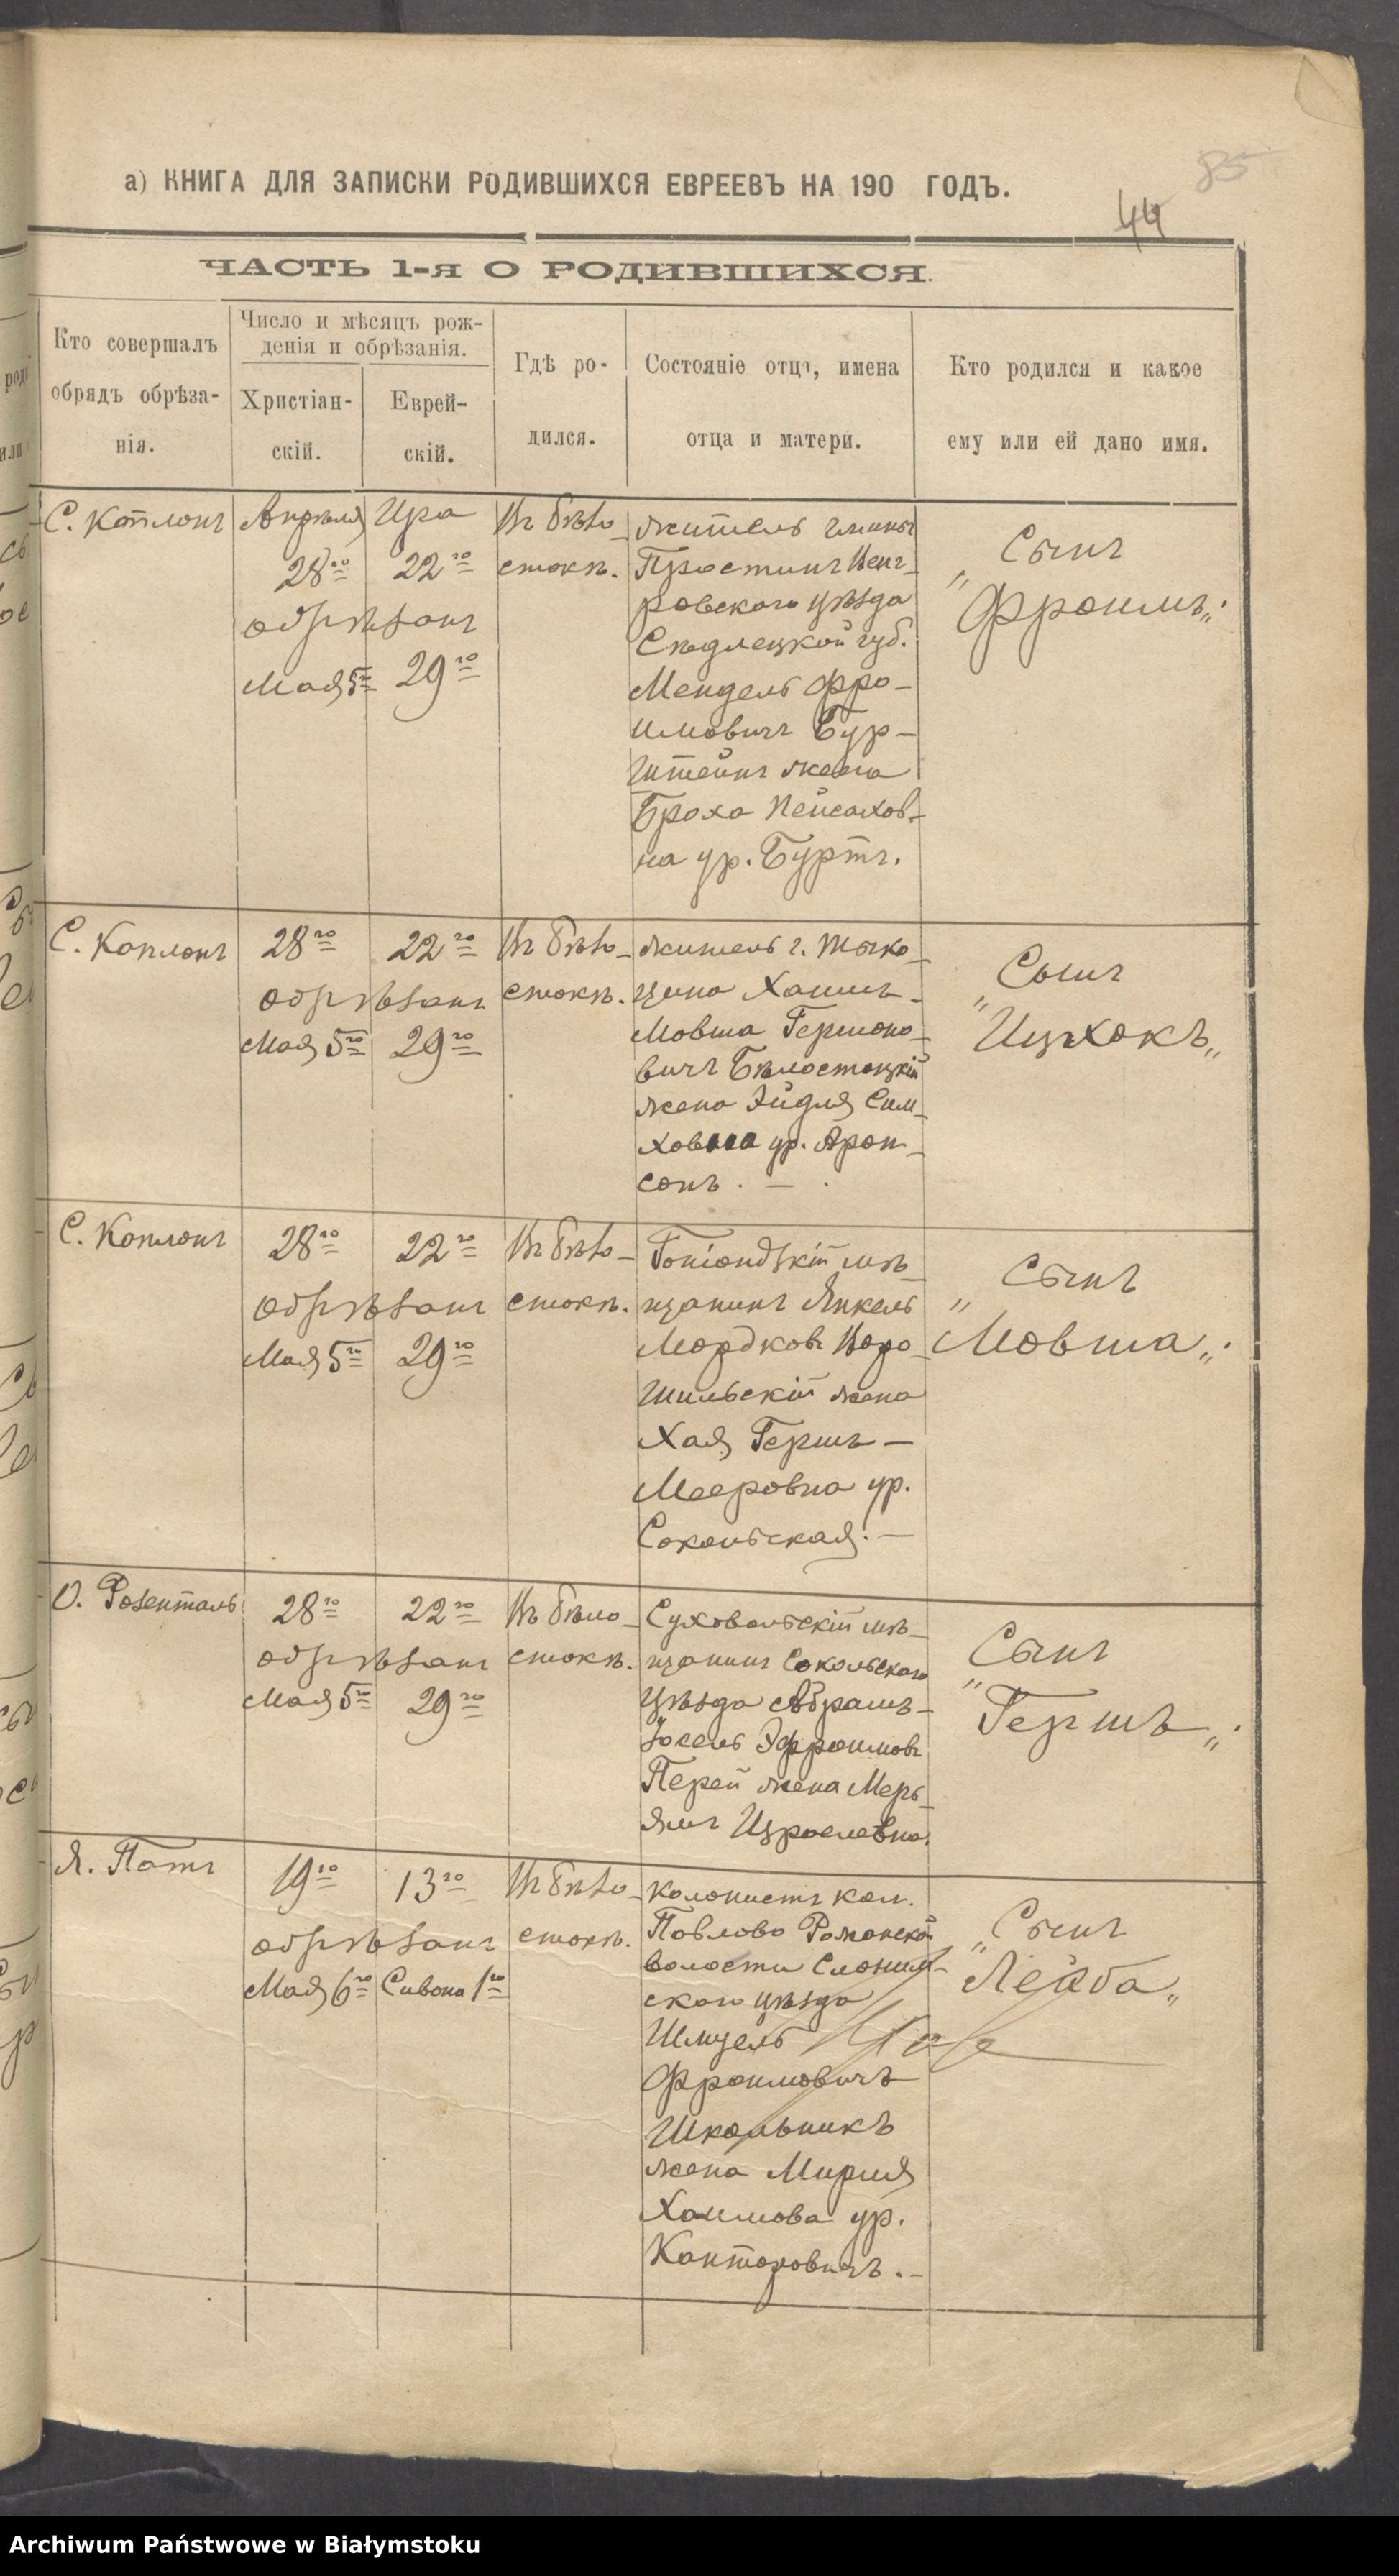 85
а) КНИГА ДЛЯ ЗАПИСКИ РОДИВШИХСЯ ЕВРЕЕВЪ НА 190 ГОДЪ.
44
ЧАСТЬ 1-я О РОДИВШИХСЯ.
Кто совершалъ
обрядъ обрѣза-
нія.
Число и мѣсяцъ рож-
денія и обрѣзанія.
Христіан-
скій.
Еврей-
скій.
Гдѣ ро-
дился.
Состояніе отца, имена
отца и матери.
Кто родился и какое
ему или ей дано имя.
С. Каплонъ
Апрѣля
28го
обрѣзанъ
Мая 5го
Ира
22го
29го
Въ Бѣло-
стокѣ.
житель гмины
Простинъ Венг-
ровскаго уѣзда
Сѣдлецкой губ.
Мендель Фро-
имовичъ Бур-
штейнъ жена
Броха Пейсахов-
на ур. Буртъ.
Сынъ
„Фроимъ„.
С. Каплонъ
28го
обрѣзанъ
Мая 5го
22го
29го
Въ Бѣло-
стокѣ.
житель г. Тыко-
цина Хаимъ-
Мовша Гершоно-
вичъ Бѣлостоцкій
жена Эйдля Сим-
ховна ур. Арон-
сонъ. —
Сынъ
„Ицхокъ„
С. Каплонъ
28го
обрѣзанъ
Мая 5го
22го
29го
Въ Бѣло-
стокѣ.
Гоніондзкій мѣ-
щанинъ Янкель
Мордковъ Воро-
шильскій жена
Хая Гершъ-
Мееровна ур.
Сокольская. —
Сынъ
„Мовша„.
О. Розенталь
28го
обрѣзанъ
Мая 5го
22го
29го
Въ Бѣло-
стокѣ.
Суховольскій мѣ-
щанинъ Сокольскаго
уѣзда Абрамъ-
Іосель Эфроимовъ
Перей жена Мерь-
ямъ Израелевна.
Сынъ
„Гершъ„.
Я. Патъ
19го
обрѣзанъ
Мая 6го
13го
Сивона 1го
Въ Бѣло-
стокѣ.
колонистъ кол.
Павлово Романской
волости Слоним-
скаго уѣзда
Шмуель
Фроимовичъ
Школьникъ
жена Мирия
Хаимова ур.
Канторовичъ. —
Сынъ
„Лейба„
Archiwum Państwowe w Białymstoku